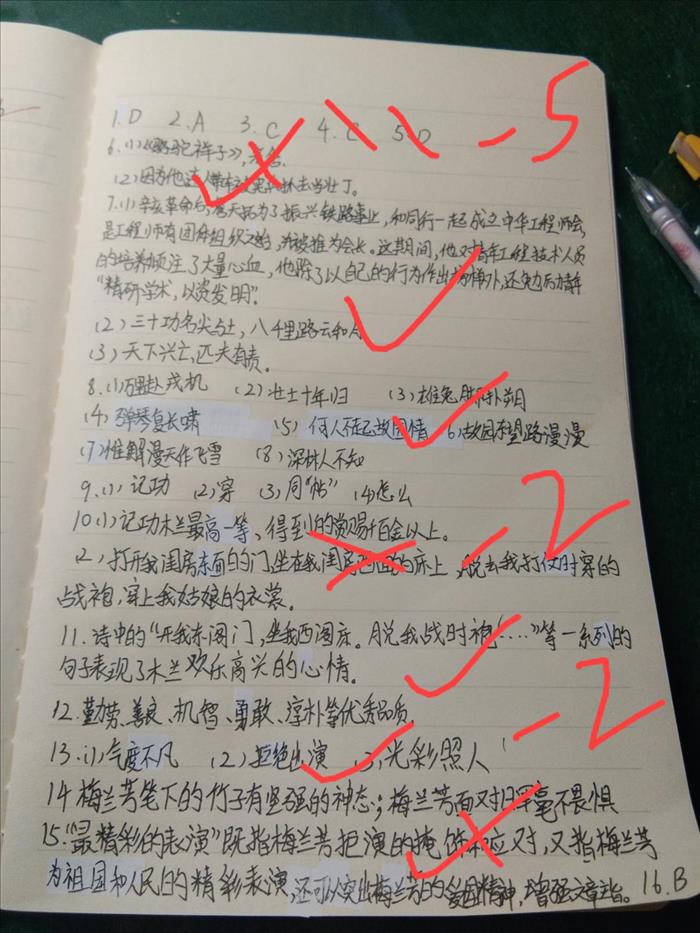 1.D 2.A 3.C 4.C 5.D -5
6.(1)《骆驼祥子》,老舍.
(2)因为他连人带车被 抓去当壮丁。
7.(1)辛亥革命后,詹天佑为了振兴铁路事业,和同行一起成立中华工程师会,
是工程师有团体组织之始,并被推为会长。这期间,他对青年工程技术人员
的培养倾注了大量心血,他除了以自己的行为作出榜样外,还勉励青年
“精研学术,以资发明”.
(2)三十功名尘与土,八千里路云和月
(3)天下兴亡,匹夫有责。
8.(1)万里赴戎机 (2)壮士十年归 (3)雄兔脚扑朔
(4)弹琴复长啸 (5)何人不起故园情 (6)故园东望路漫漫
(7)惟解漫天作飞雪 (8)深林人不知
9.(1)记功 (2)穿 (3)同“帖” (4)怎么
10.(1)记功木兰最高一等、得到的赏赐千百金以上。 -2
(2)打开我闺房东面的门,坐在我闺房西面的床上,脱去我打仗时穿的
战袍,穿上我姑娘的衣裳。
11.诗中的“开我东阁门,坐我西阁床。脱我战时袍……”等一系列的
句子表现了木兰欢乐高兴的心情。
12.勤劳、善良、机智、勇敢、淳朴等优秀品质.
13.(1)气度不凡 (2)拒绝出演 (3)光彩照人 -2
14.梅兰芳笔下的竹子有坚强的神态;梅兰芳面对日军毫不畏惧
15.“最精彩的表演”既指梅兰芳把演的掩饰和应对,又指梅兰芳
为祖国和人民的精彩表演,还可以突出梅兰芳的爱国精神,增强文章主旨。 16.B